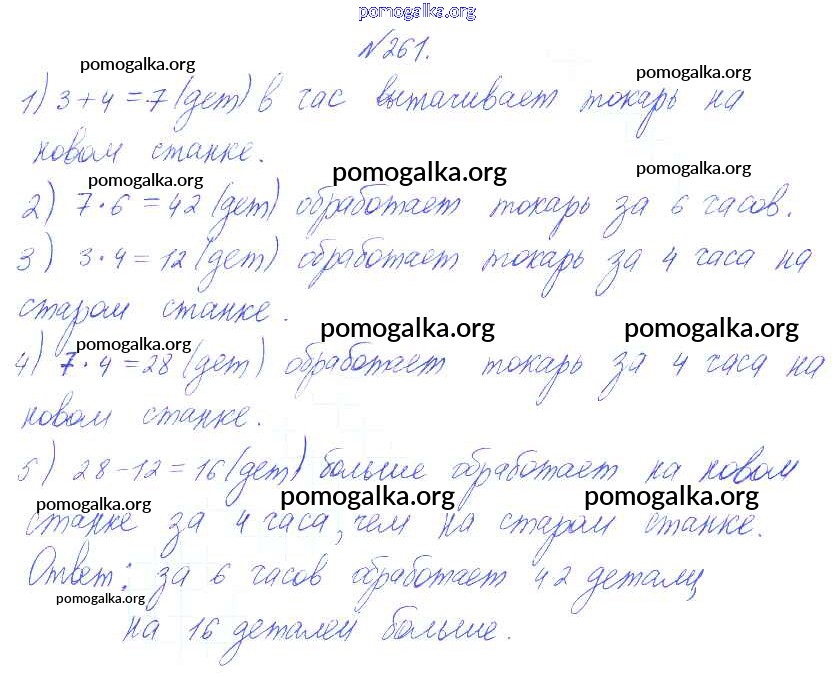 pomogalka.org
№261.
pomogalka.org
pomogalka.org
1) 3+4=7 (дет) в час вытачивает токарь на
новом станке.
pomogalka.org
pomogalka.org
pomogalka.org
2) 7·6=42 (дет) обработает токарь за 6 часов.
3) 3·4=12 (дет) обработает токарь за 4 часа на
старом станке.
pomogalka.org
pomogalka.org
pomogalka.org
4) 7·4=28 (дет) обработает токарь за 4 часа на
новом станке.
5) 28-12=16 (дет) больше обработает на новом
pomogalka.org
pomogalka.org
pomogalka.org
станке за 4 часа, чем на старом станке.
Ответ: за 6 часов обработает 42 детали
pomogalka.org
на 16 деталей больше.